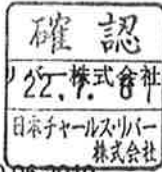 確認
リバー株式会社
22.7.
日本チャールス・リバー
株式会社